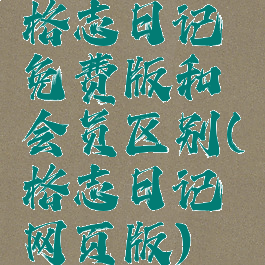 格志日记
免费版和
会员区别(
格志日记
网页版)